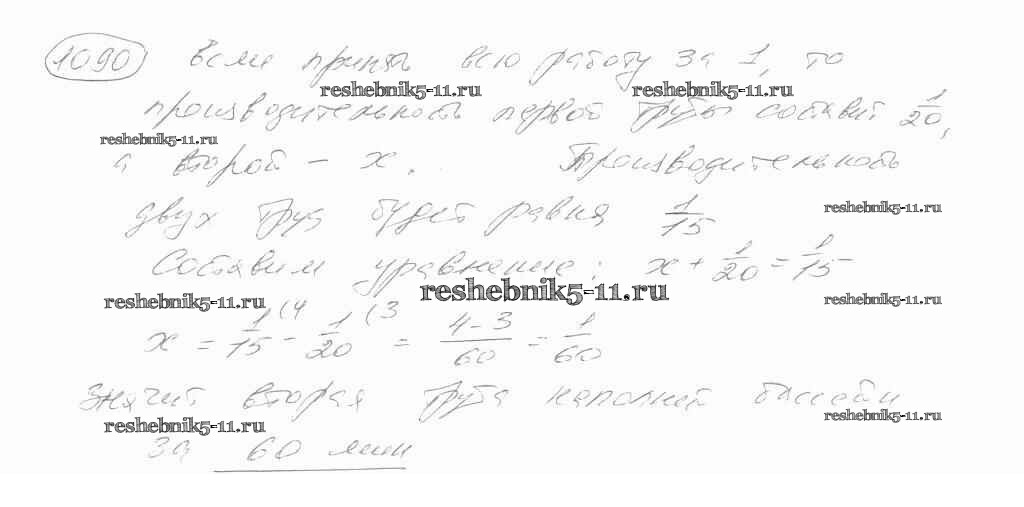 1090 Если принять всю работу за 1, то
reshebnik5-11.ru reshebnik5-11.ru
производительность первой трубы составит 1/20,
reshebnik5-11.ru
а второй – x. Производительность
двух труб будет равна 1/15
reshebnik5-11.ru
Составим уравнение: x + 1/20 = 1/15
reshebnik5-11.ru reshebnik5-11.ru reshebnik5-11.ru
x = 1/15 (4 - 1/20 (3 = 4-3/60 = 1/60
Значит вторая труба наполнит бассейн
reshebnik5-11.ru reshebnik5-11.ru
за 60 мин